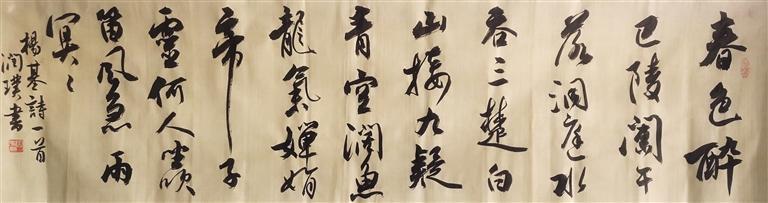 春色醉
巴陵闌干
落洞庭水
吞三楚白
山接九疑
青空濶魚
龍氣嬋娟
帝子
靈何人夜吹
笛風急雨
冥々
楊基詩一首
潤璞書